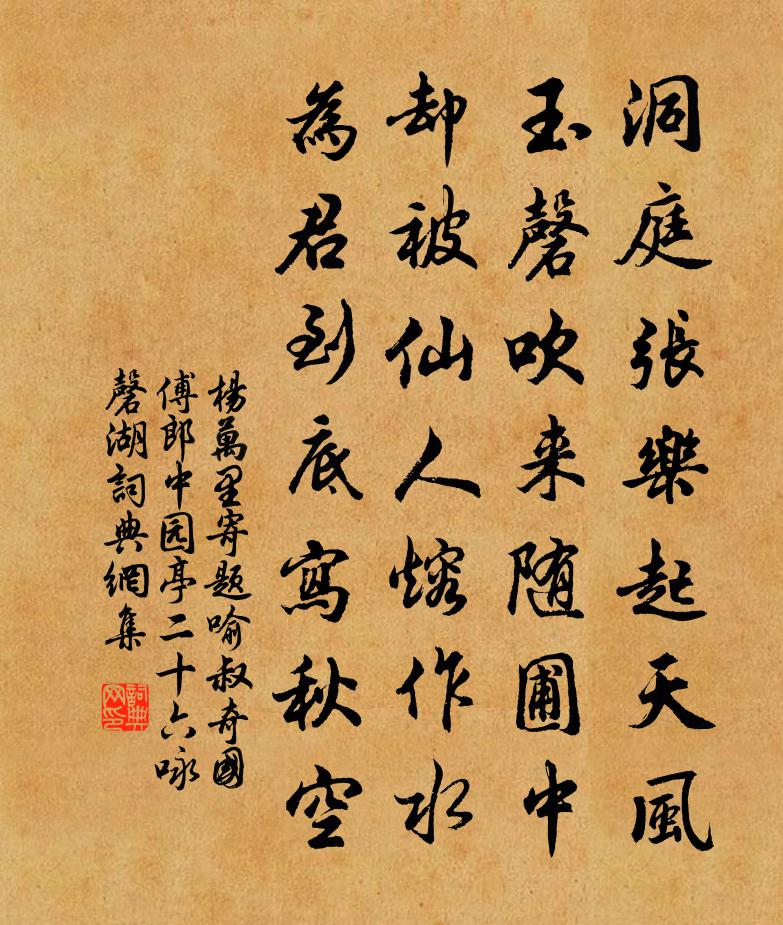 洞庭張樂起天風
玉磬吹来随圃中
却被仙人熔作水
為君到底寫秋空
楊萬里寄題喻叔奇國
傅郎中园亭二十六咏
磬湖詞典網集
詞典网印